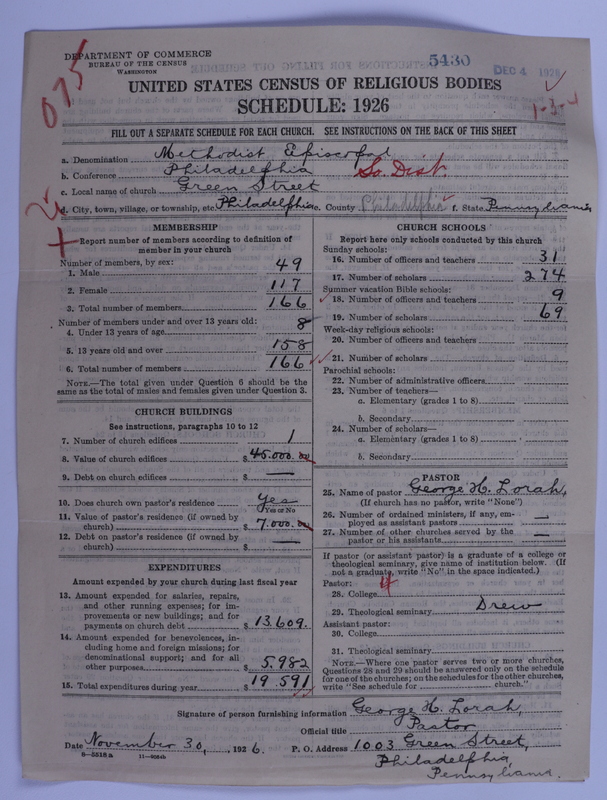 DEPARTMENT OF COMMERCE
BUREAU OF THE CENSUS
WASHINGTON
5430
DEC 4 1926
075
1-3-4
UNITED STATES CENSUS OF RELIGIOUS BODIES
SCHEDULE: 1926
FILL OUT A SEPARATE SCHEDULE FOR EACH CHURCH. SEE INSTRUCTIONS ON THE BACK OF THIS SHEET
a. Denomination Methodist Episcopal
b. Conference Philadelphia So. Dist.
c. Local name of church Green Street
d. City, town, village, or township, etc. Philadelphia e. County Philadelphia f. State Pennsylvania
MEMBERSHIP
Report number of members according to definition of member in your church
Number of members, by sex:
1. Male 49
2. Female 117
3. Total number of members 166
Number of members under and over 13 years old:
4. Under 13 years of age 8
5. 13 years old and over 158
6. Total number of members 166
NOTE.—The total given under Question 6 should be the
same as the total of males and females given under Question 3.
CHURCH BUILDINGS
See instructions, paragraphs 10 to 12
7. Number of church edifices 1
8. Value of church edifices $ 45.000.00
9. Debt on church edifices $ —
10. Does church own pastor's residence Yes
Yes or No
11. Value of pastor's residence (if owned by
church) $ 7.000.00
12. Debt on pastor's residence (if owned by
church) $ —
EXPENDITURES
Amount expended by your church during last fiscal year
13. Amount expended for salaries, repairs,
and other running expenses; for im-
provements or new buildings; and for
payments on church debt $ 13.609.
14. Amount expended for benevolences, in-
cluding home and foreign missions; for
denominational support; and for all
other purposes $ 5.982
15. Total expenditures during year $ 19.591
CHURCH SCHOOLS
Report here only schools conducted by this church
Sunday schools:
16. Number of officers and teachers 31
17. Number of scholars 274
Summer vacation Bible schools:
18. Number of officers and teachers 9
19. Number of scholars 69
Week-day religious schools:
20. Number of officers and teachers
21. Number of scholars
Parochial schools:
22. Number of administrative officers
23. Number of teachers—
a. Elementary (grades 1 to 8)
b. Secondary
24. Number of scholars—
a. Elementary (grades 1 to 8)
b. Secondary
PASTOR
25. Name of pastor George H. Lorah,
(If church has no pastor, write "None")
26. Number of ordained ministers, if any, em-
ployed as assistant pastors —
27. Number of other churches served by the
pastor or his assistants —
If pastor (or assistant pastor) is a graduate of a college or
theological seminary, give name of institution below. (If
not a graduate, write "No" in the space indicated.)
Pastor:
28. College
29. Theological seminary Drew
Assistant pastor:
30. College
31. Theological seminary
NOTE.—Where one pastor serves two or more churches,
Questions 28 and 29 should be answered only on the schedule
for one of the churches; on the schedules for the other churches,
write "See schedule for church."
Signature of person furnishing information George H. Lorah,
Official title Pastor
Date November 30, 1926. P. O. Address 1003 Green Street,
Philadelphia,
Pennsylvania.
8—5518a